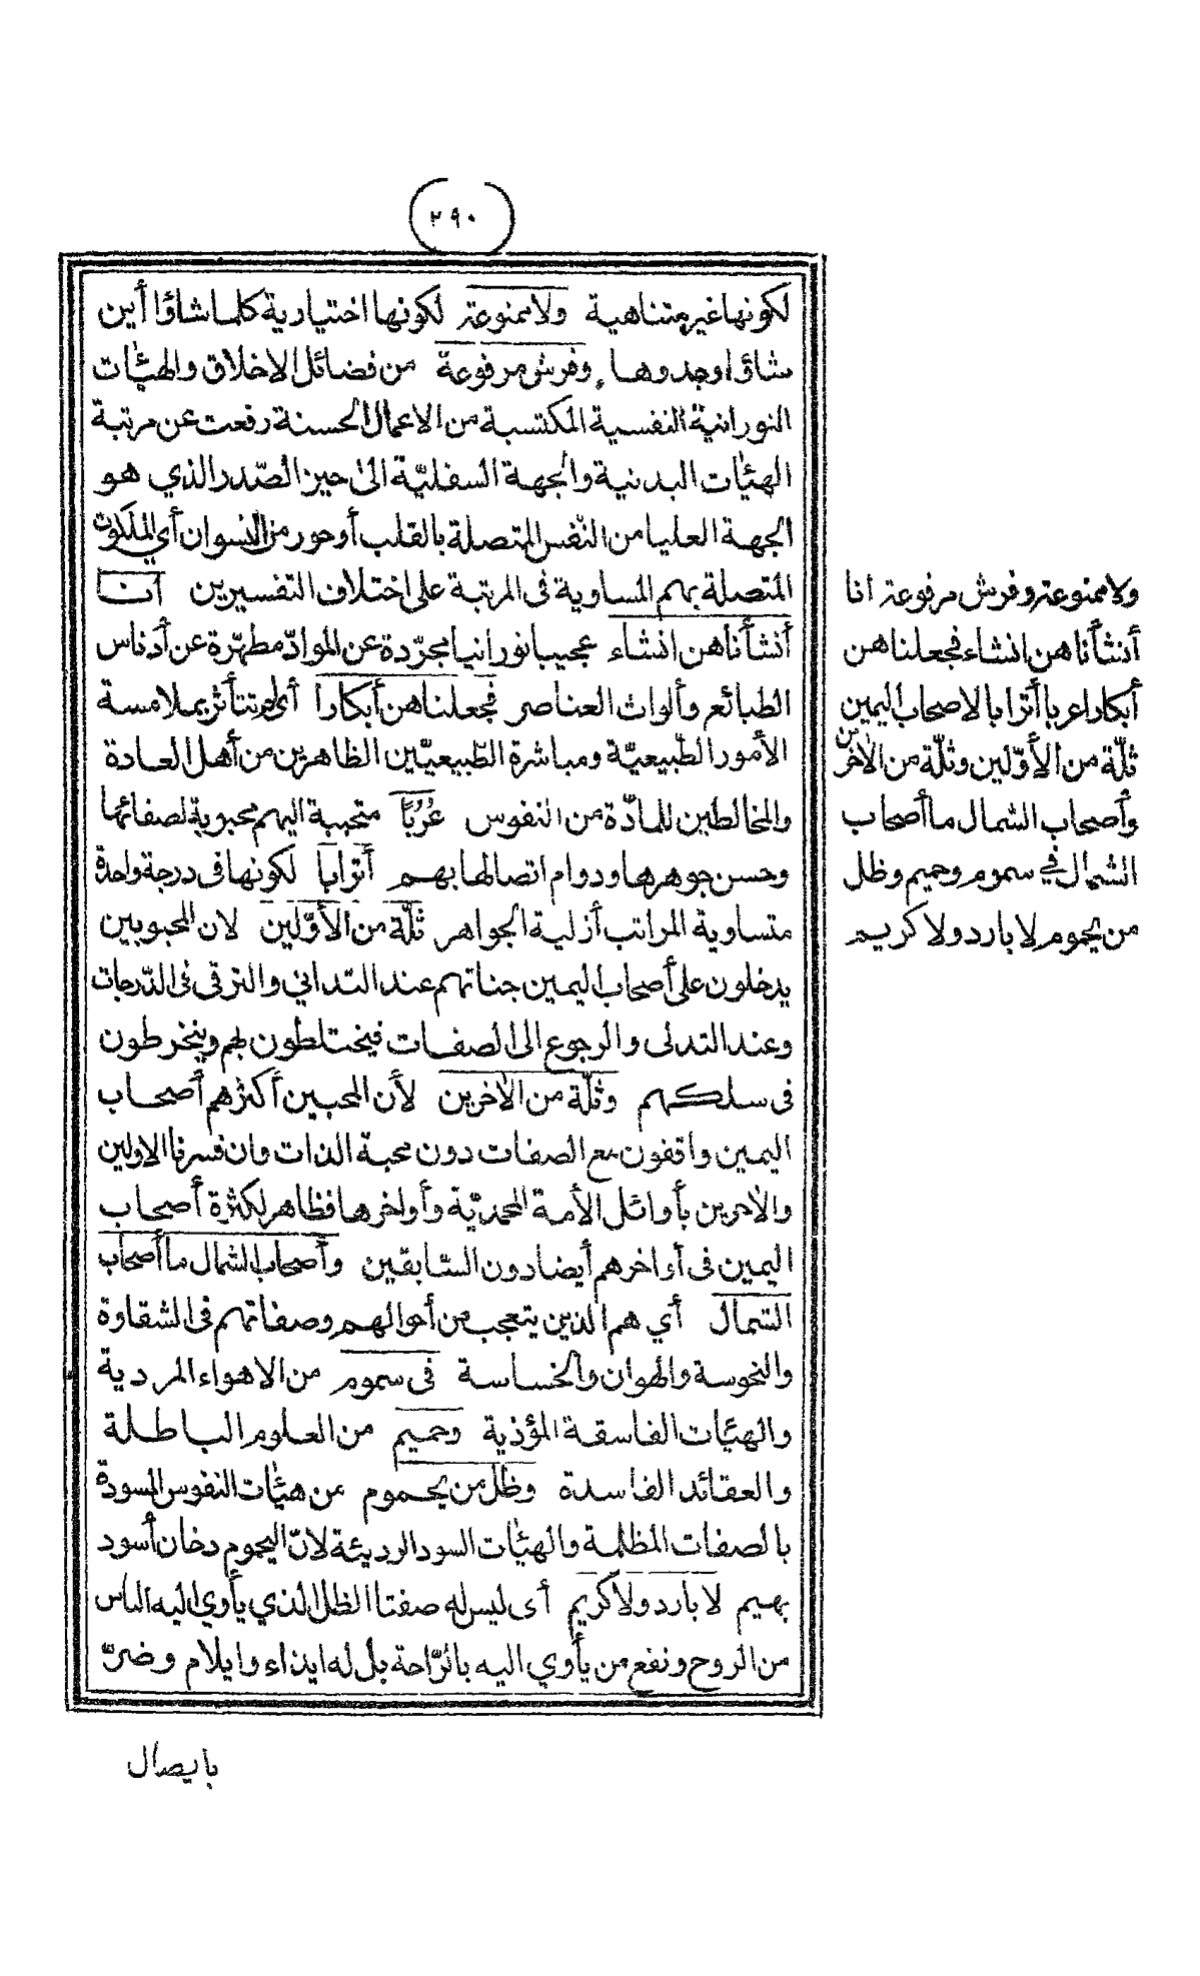 (٢٩٠)
لكونها غير متناهية ولا ممنوعة لكونها اختيارية كلما شاؤا أين
شاؤا وجدوها وفرش مرفوعة من فضائل الاخلاق والهيٰات
النورانية النفسية المكتسبة من الاعمال الحسنة رفعت عن مرتبة
الهيٰات البدنية والجهة السفليّة الى حيز الصّدر الذي هو
الجهة العليا من النفس المتصلة بالقلب أوحور من النسوان أي الملكوت
المتصلة بهم المساوية فى المرتبة على اختلاف التفسيرين انا
أنشأناهن انشاء عجيبا نورانيا مجرّدة عن الموادّ مطهّرة عن أدناس
الطبائع وألواث العناصر فجعلناهن أبكارا أي لم تتأثر بملامسة
الأمور الطّبيعيّة ومباشرة الطّبيعيّين الظاهرين من أهل العادة
والمخالطين للمادّة من النفوس عُرُبًا متحببة اليهم محبوبة لصفائها
وحسن جوهرها ودوام اتصالها بهم أترابا لكونها فى درجة واحدة
متساوية المراتب أزلية الجواهر ثلّة من الأوّلين لان المحبوبين
يدخلون على أصحاب اليمين جناتهم عند التداني والترقى فى الدّرجات
وعند التدلى والرجوع الى الصفات فيختلطون بهم وينخرطون
فى سلكهم وثلّة من الاٰخرين لأن المحبين أكثرهم أصحاب
اليمين واقفون مع الصفات دون محبة الذات وان فسرنا الاولين
والاٰخرين بأوائل الأمة المحمديّة وأواخرها فظاهر لكثرة أصحاب
اليمين فى أواخرهم أيضا دون السّابقين وأصحاب الشمال ما أصحاب
الشمال أي هم الذين يتعجب من أحوالهم وصفاتهم فى الشقاوة
والنحوسة والهوان والخساسة فى سموم من الاهواء المردية
والهيٰات الفاسقة المؤذية وحميم من العلوم الباطلة
والعقائد الفاسدة وظل من يحموم من هيٰات النفوس المسودة
بالصفات المظلمة والهيٰات السود الرديئة لانّ اليحموم دخان أسود
بهيم لا بارد ولا كريم أى ليس له صفتا الظل الذي يأوي اليه الناس
من الروح ونفع من يأوي اليه بالرّاحة بل له ايذاء وايلام وضرّ
بايصال
ولا ممنوعة وفرش مرفوعة انا
أنشأناهن انشاء فجعلناهن
أبكارا عربا أترابا لاصحاب اليمين
ثلّة من الأوّلين وثلّة من الاٰخرين
وأصحاب الشمال ما أصحاب
الشمال في سموم وحميم وظل
من يحموم لا بارد ولا كريم